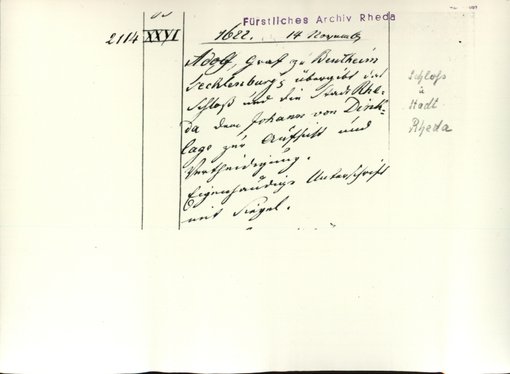 Fürstliches Archiv Rheda
2114 XXVI 1622. 14 Novemb
Adolf, Graf zu Bentheim
Tecklenburg übergibt das
Schloß und die Stadt Rhe-
da dem Johann von Dink-
lage zur Aufsicht und
Vertheidigung.
Eigenhändige Unterschrift
mit Siegel.
Schloß
u
Stadt
Rheda